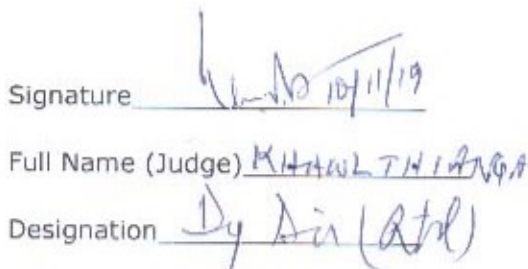 Signature 10/11/19
Full Name (Judge) KHAWLTHIANGA
Designation Dy Dir (Rtd)